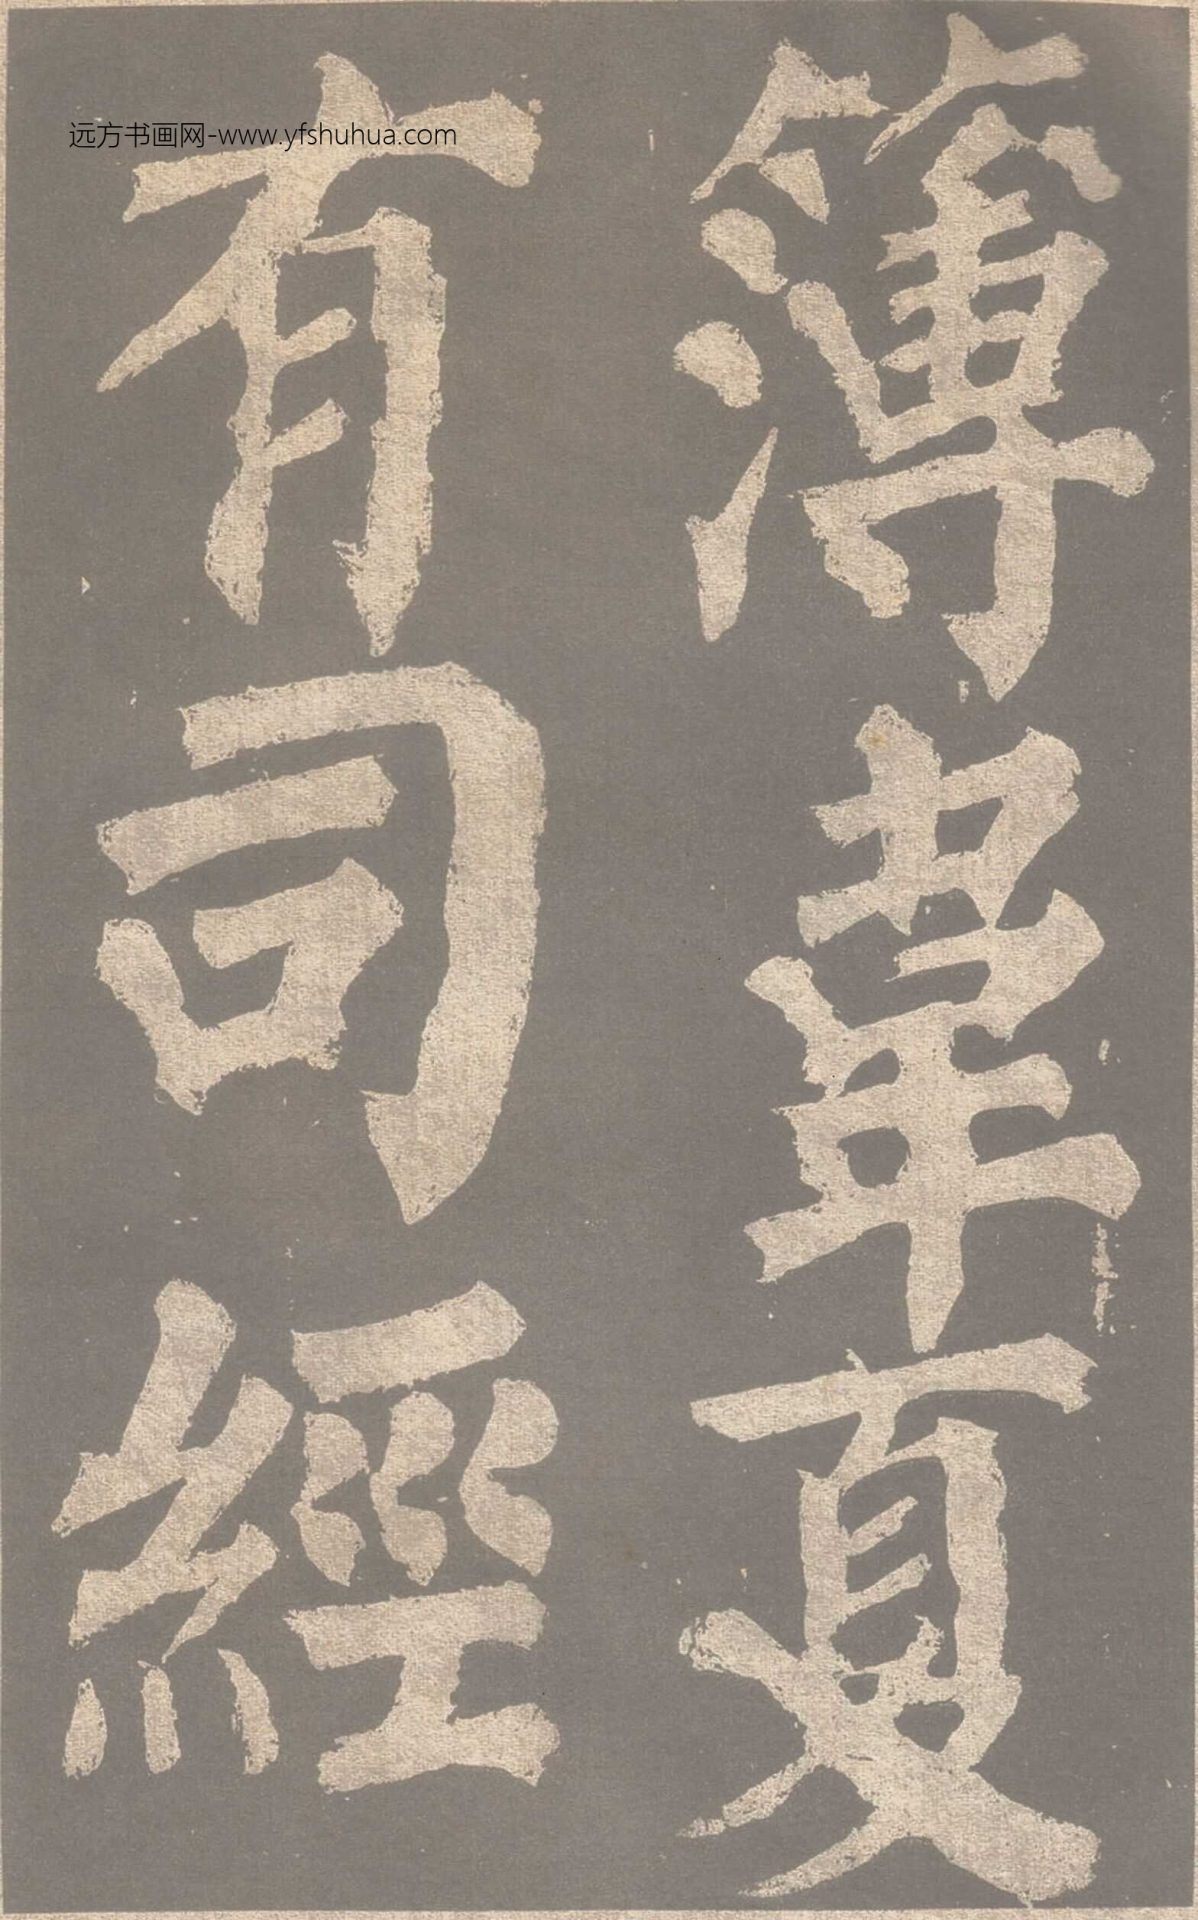 簿韋夏
有司經
远方书画网-www.yfshuhua.com